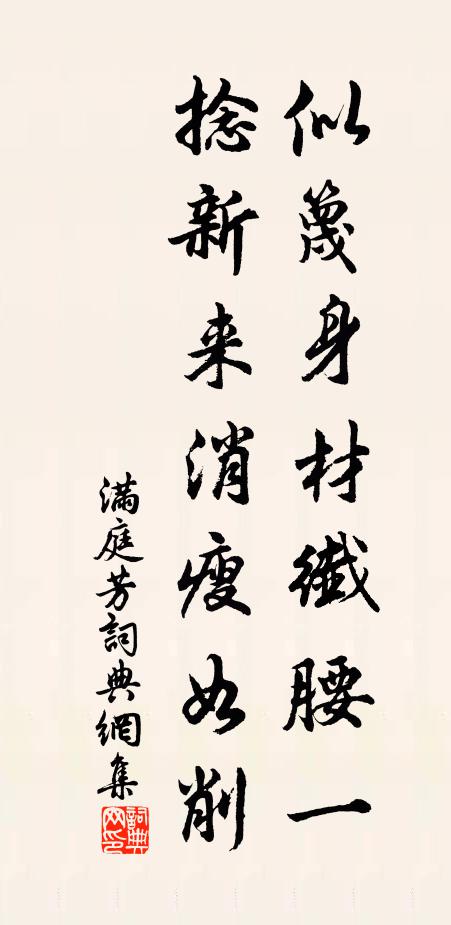 似篾身材纖腰一
捻新来消瘦如削
滿庭芳詞典網集
詞典網印